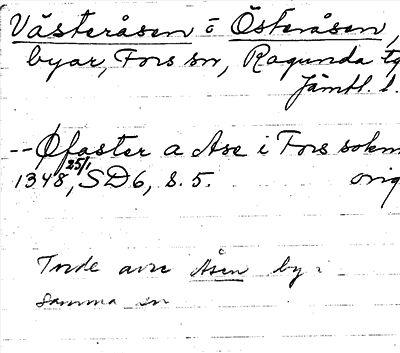 Västeråsen o Österåsen,
byar, Fors sn, Ragunda tg
Jämtl. l.
-- Øfaster a Ase i Fors sokn
1348 25/1, SD6, s. 5. orig
Torde avse Åsen by i
samma sn